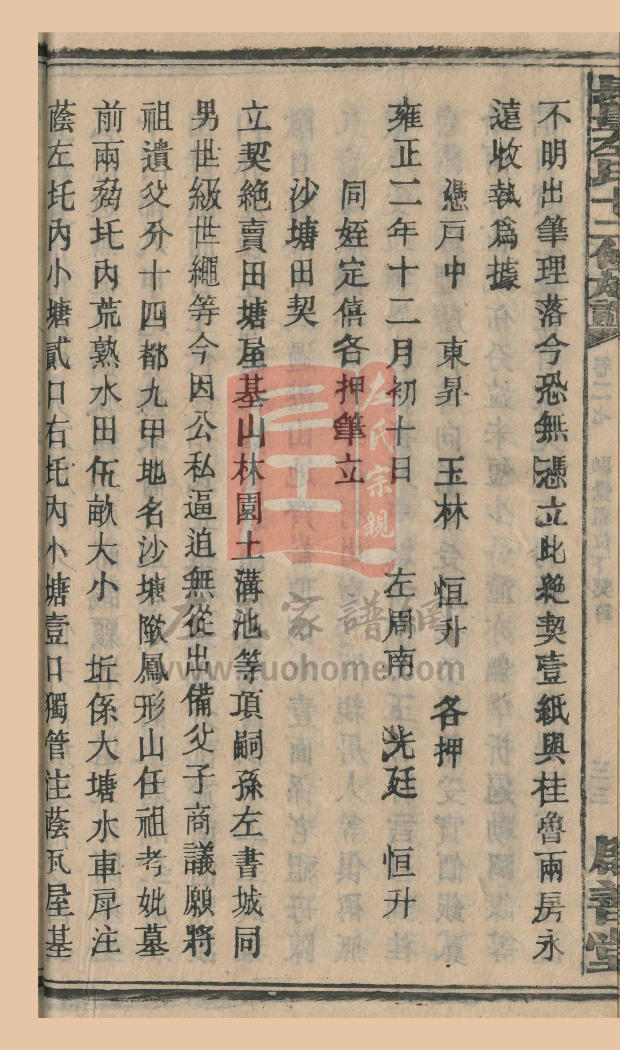 不明出筆理落今恐無憑立此絶契壹紙與桂魯兩房永
遠收執爲據
憑戸中 東昇 玉林 恒升 各押
雍正二年十二月初十日 左周南 光廷 恒升
同姪定僖各押筆立
沙塘田契
立契絶賣田塘屋基山林園土溝池等項嗣孫左書城同
男世級世繩等今因公私逼迫無從出備父子商議願將
祖遺父分十四都九甲地名沙塘
鳳形山任祖考妣墓
前兩旁圫内荒熟水田伍畝大小
坵係大塘水車戽注
蔭左圫内小塘貳口右圫内小塘壹口獨管注蔭瓦屋基
卷二七
三三
左氏宗親
左氏家譜網
www.zuohome.com